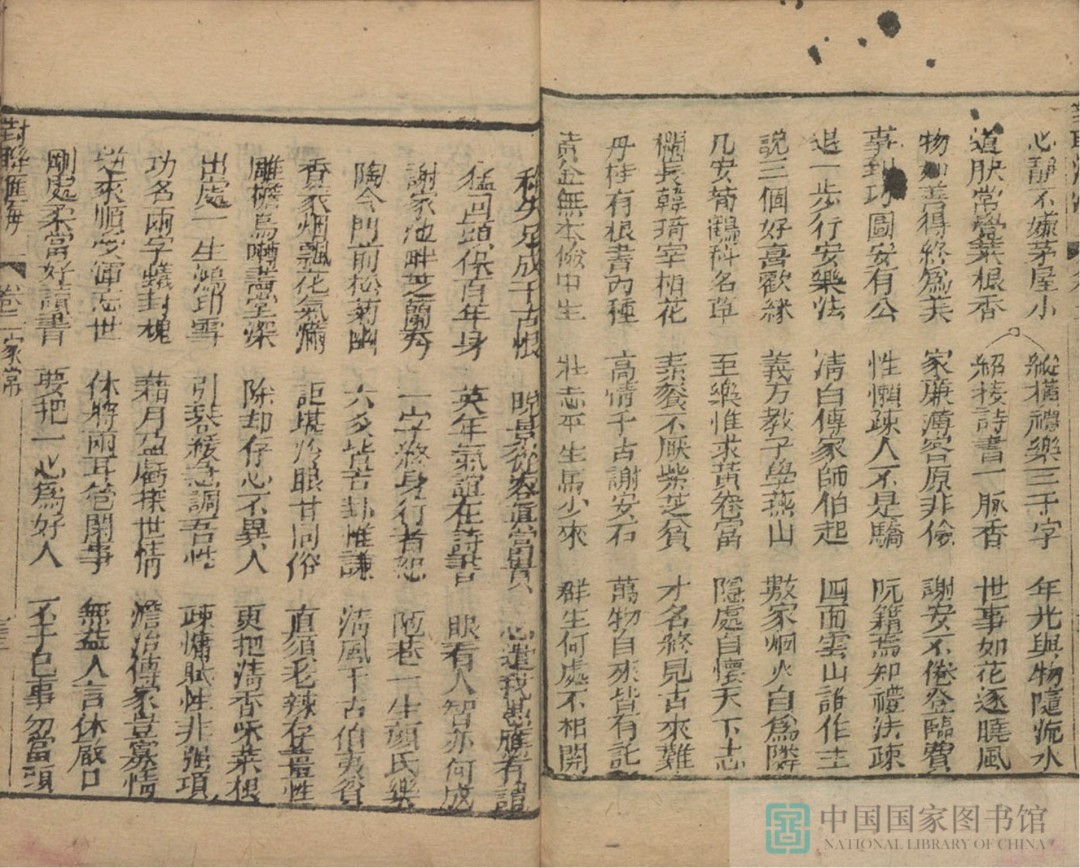 心靜不嫌茅屋小 縱橫禮樂三千字 年光與物隨流水
道腴常覺菜根香 紹接詩書一脉香 世事如花逐曉風
物如善得終爲美 家廉薄容原非儉 謝安不倦登臨費
事到巧圖安有公 性懶疎人不是驕 阮籍焉知禮法疎
退一步行安樂法 清白傳家師伯起 四面雲山誰作主
說三個好喜歡緣 義方教子學燕山 數家烟火自爲隣
几安荀鶴科名草 至樂惟求黃卷富 隱處自懷天下志
欄長韓琦宰相花 素餐不厭紫芝貧 才名終見古來難
丹桂有根書內種 高情千古謝安石 萬物自來皆有託
黃金無本儉中生 壯志平生馬少來 群生何處不相關
成千古恨 晚景從容直富貴 心遣我愚應有謂
猛回頭保百年身 英年氣誼在詩書 眼看人智亦何成
謝家池畔芝蘭秀 一字終身行者恕 陋巷一生顏氏樂
陶令門前松菊幽 六爻皆吉卦惟謙 清風千古伯夷貧
香篆烟飄花氣滿 詎堪冷眼甘同俗 直須老辣存薑性
雕檐鳥囀畵堂深 除却存心不異人 更把清香咏菜根
出處一生鴻印雪 引琴緩急調吾性 疎慵賦性非强項
功名兩字蟻封槐 藉月盈虧探世情 澹治傳家豈寡情
逆來順受渾忘世 休將兩耳管閑事 無益人言休啟口
剛處柔當好讀書 要把一心爲好人 不干已事勿當頭
對聯匯海 卷二 家常